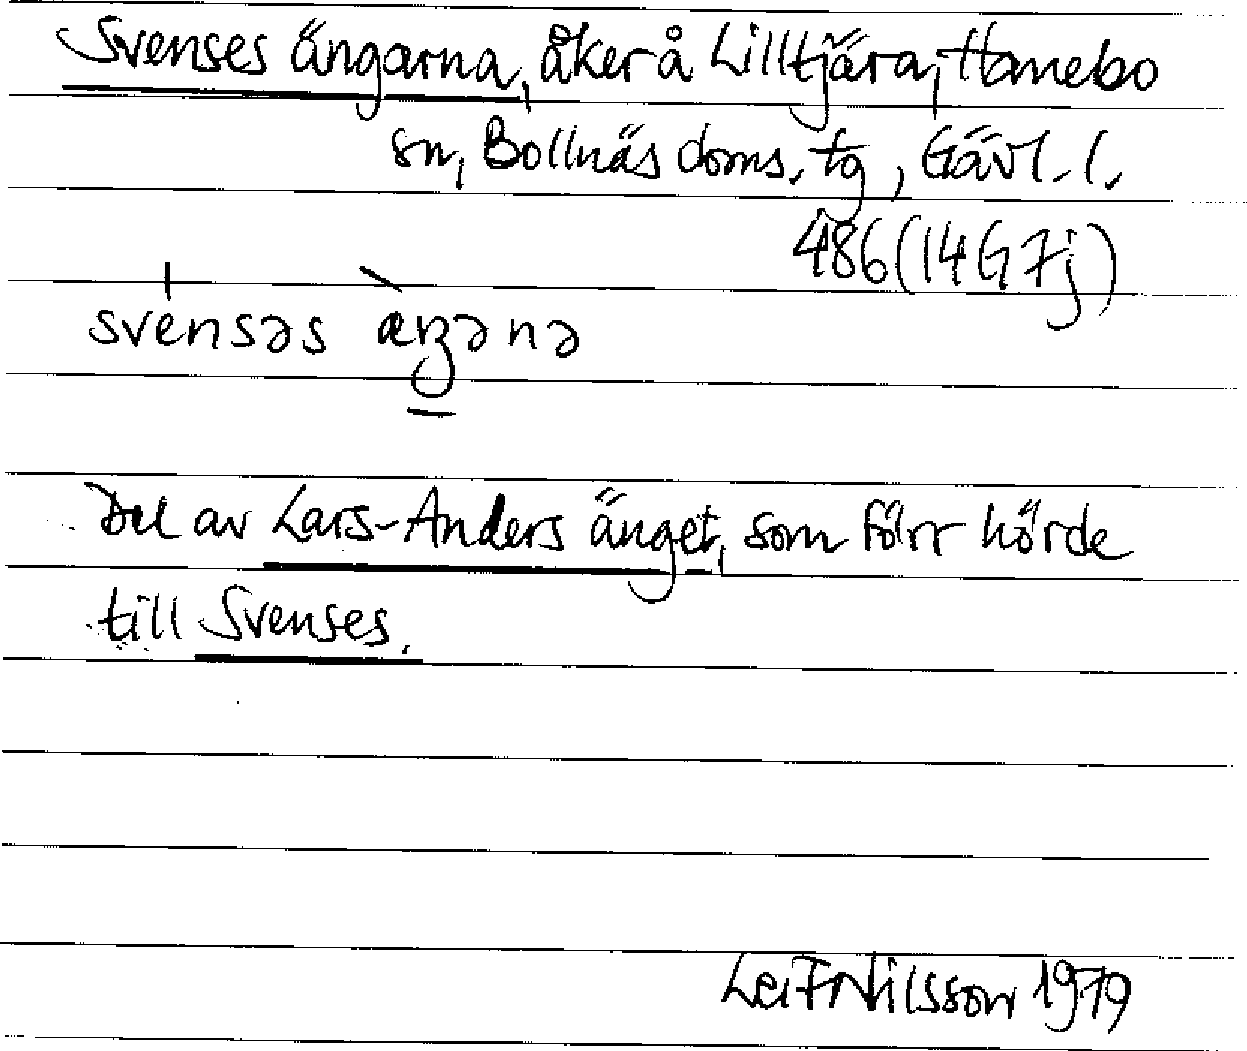 Svenses ängarna, åker å Lilltjära, Hanebo
sn, Bollnäs doms. tg, Gävl. l.
486 (14G7j)
svensəs æŋənə
Del av Lars-Anders änget, som förr hörde
till Svenses.
Leif Nilsson 1979